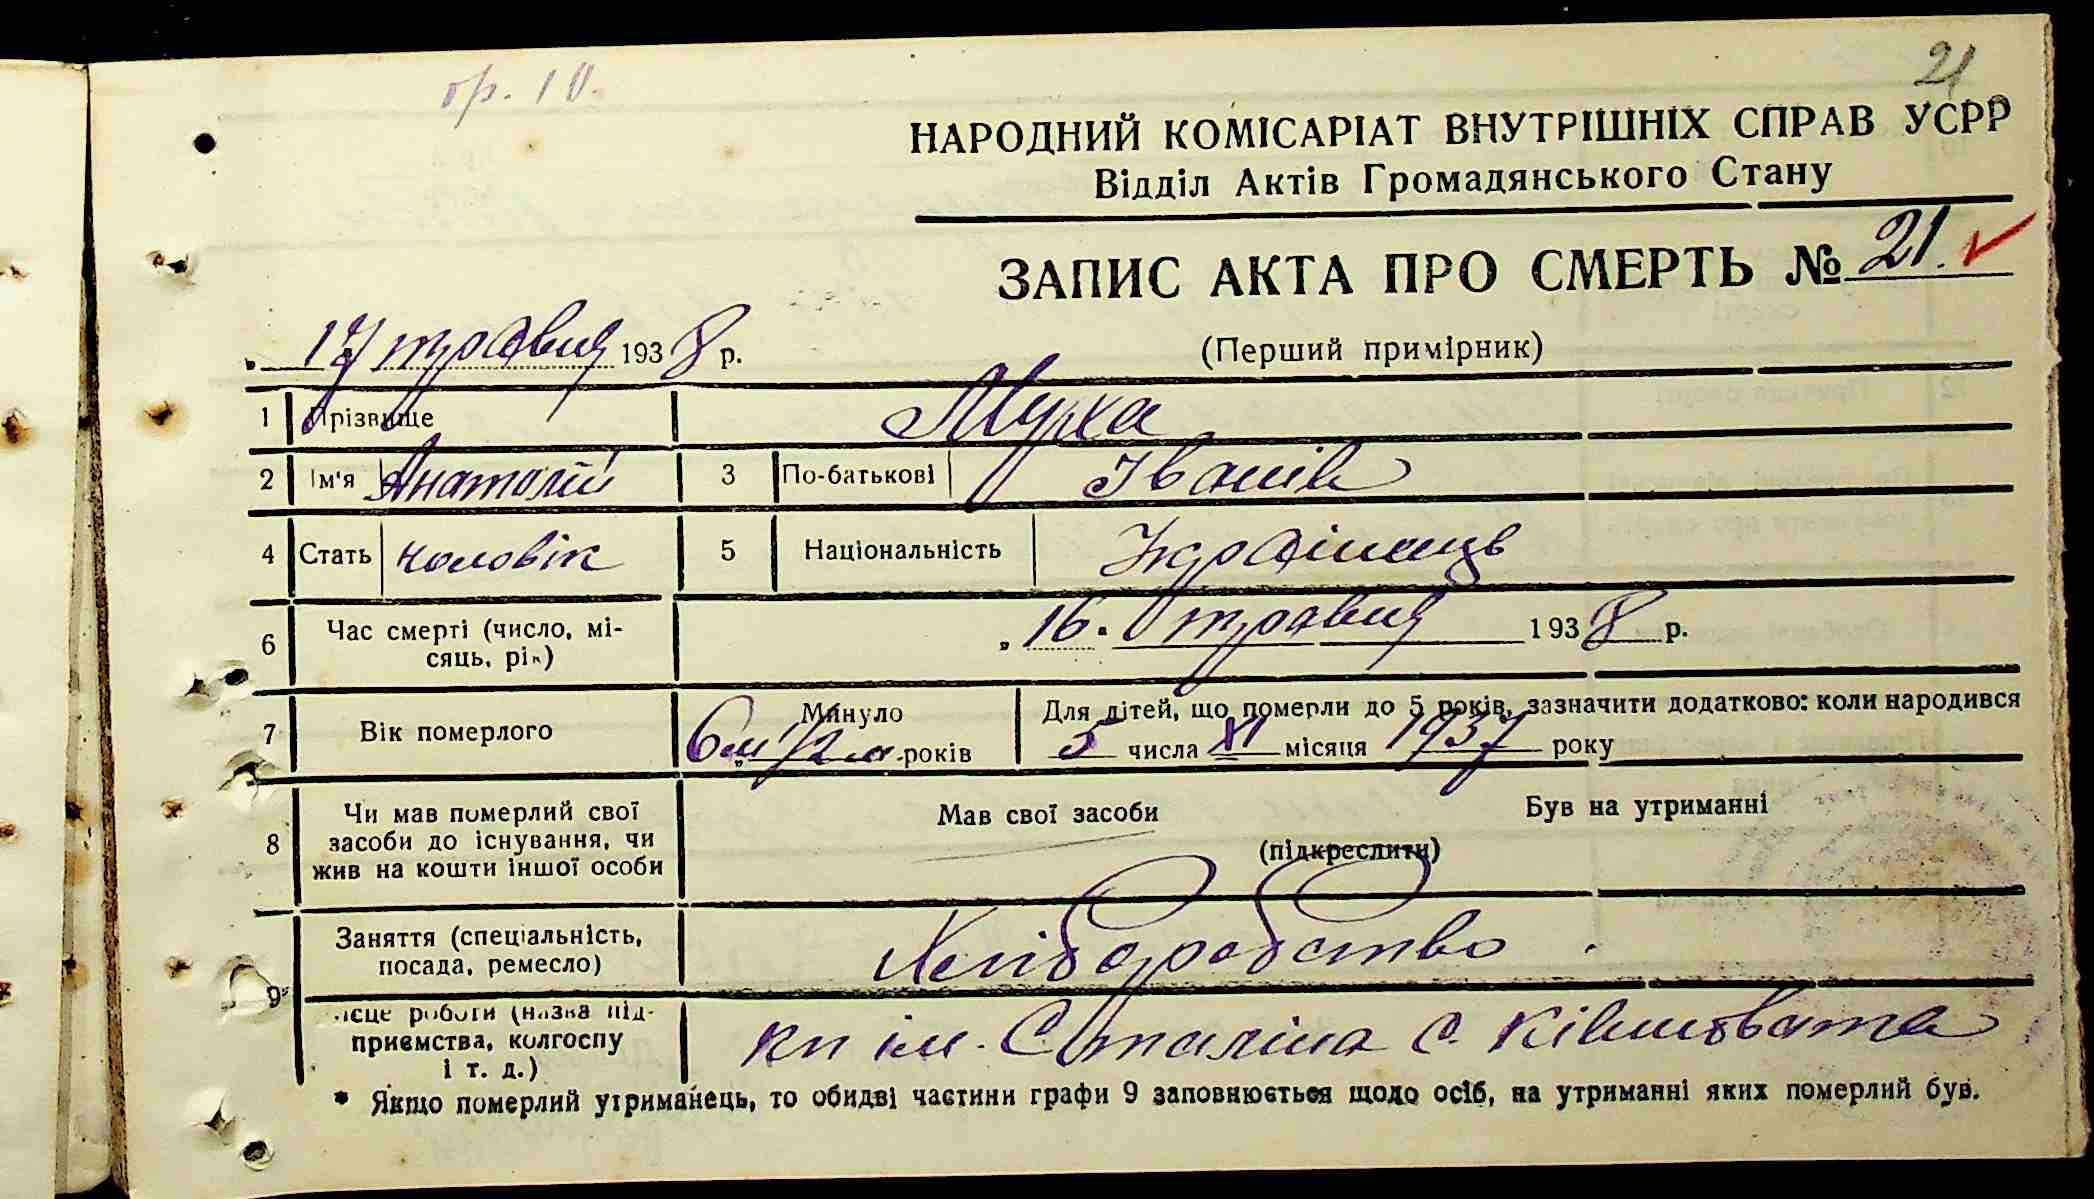 гр. 10.
21
НАРОДНИЙ КОМІСАРІАТ ВНУТРІШНІХ СПРАВ УСРР
Відділ Актів Громадянського Стану
ЗАПИС АКТА ПРО СМЕРТЬ № 21.
17 травня 1938 р.
(Перший примірник)
1 Прізвище Муха
2 Ім'я Анатолій 3 По-батькові Іванів
4 Стать чоловік 5 Національність Українець
6 Час смерті (число, мі-
сяць, рік) „16" травня 1938 р.
7 Вік померлого Минуло 6 м 1/2 років Для дітей, що померли до 5 років, зазначити додатково: коли народився
5 числа XI місяця 1937 року
8 Чи мав померлий свої
засоби до існування, чи
жив на кошти іншої особи
Мав свої засоби Був на утриманні
(підкреслити)
9* Заняття (спеціальність,
посада, ремесло) Хліборобство
місце роботи (назва під-
приємства, колгоспу
і т. д.) кп ім. Сталіна с. Ківшовата
* Якщо померлий утриманець, то обидві частини графи 9 заповнюється щодо осіб, на утриманні яких померлий був.